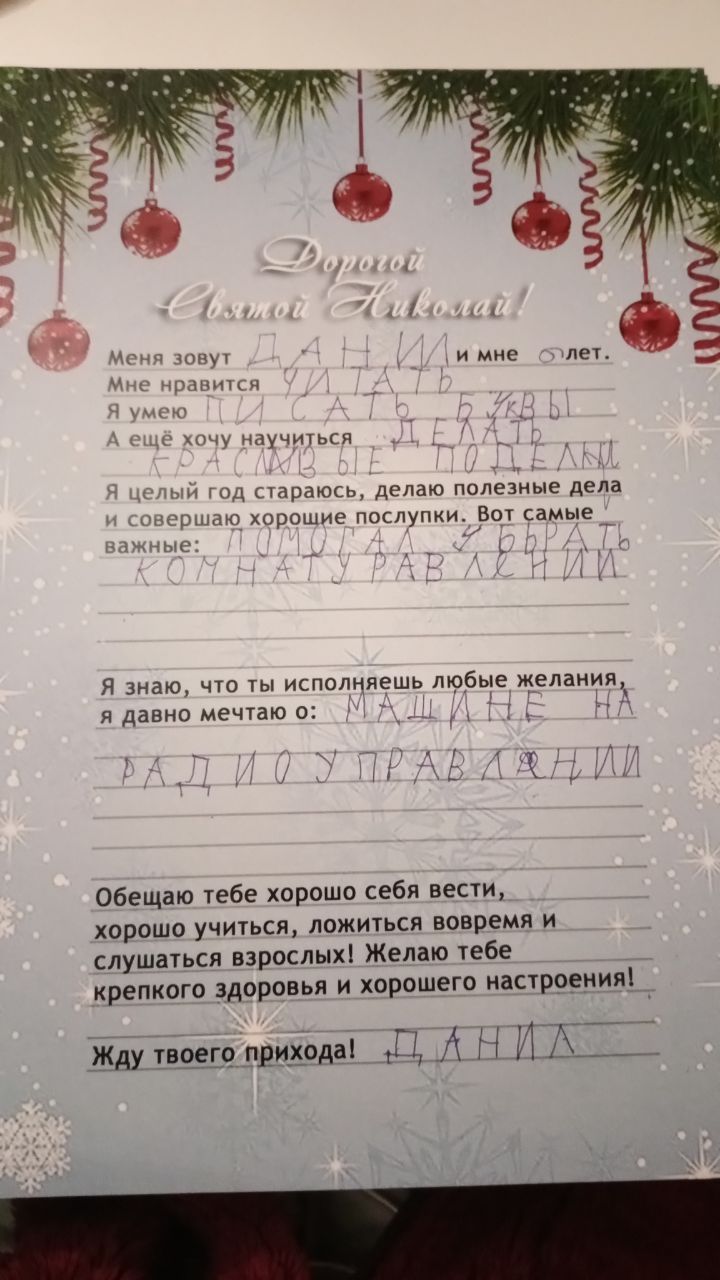 Дорогой
Святой Николай!
Меня зовут ДАНИЛ и мне 6 лет.
Мне нравится ЧИТАТЬ
Я умею ПИСАТЬ БУКВЫ
А ещё хочу научиться ДЕЛАТЬ
КРАСИВЫЕ ПОДЕЛКИ
Я целый год стараюсь, делаю полезные дела
и совершаю хорошие послупки. Вот самые
важные: ПОМОГАЛ УБЬРАТЬ
КОМНАТУ РАВЛЕНИИ
Я знаю, что ты исполняешь любые желания,
я давно мечтаю о: МАШИНЕ НА
РАДИОУПРАВЛЕНИИ
Обещаю тебе хорошо себя вести,
хорошо учиться, ложиться вовремя и
слушаться взрослых! Желаю тебе
крепкого здоровья и хорошего настроения!
Жду твоего прихода! ДАНИЛ